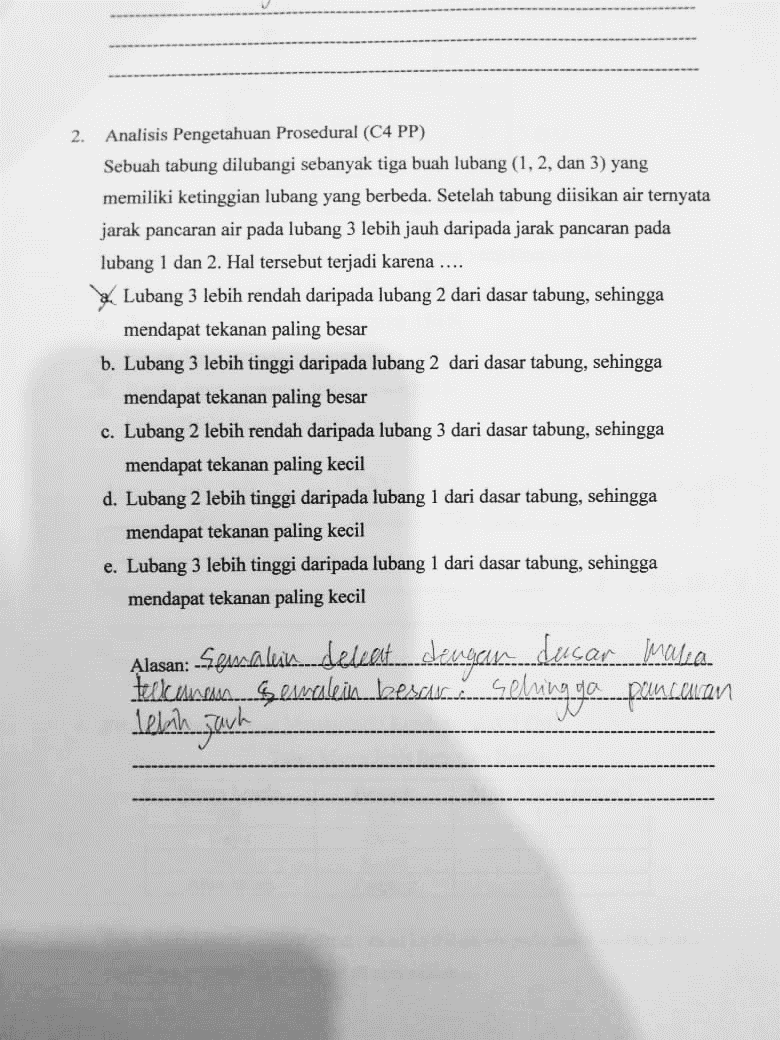 2. Analisis Pengetahuan Prosedural (C4 PP)
Sebuah tabung dilubangi sebanyak tiga buah lubang (1, 2, dan 3) yang
memiliki ketinggian lubang yang berbeda. Setelah tabung diisikan air ternyata
jarak pancaran air pada lubang 3 lebih jauh daripada jarak pancaran pada
lubang 1 dan 2. Hal tersebut terjadi karena ….
a. Lubang 3 lebih rendah daripada lubang 2 dari dasar tabung, sehingga
mendapat tekanan paling besar
b. Lubang 3 lebih tinggi daripada lubang 2 dari dasar tabung, sehingga
mendapat tekanan paling besar
c. Lubang 2 lebih rendah daripada lubang 3 dari dasar tabung, sehingga
mendapat tekanan paling kecil
d. Lubang 2 lebih tinggi daripada lubang 1 dari dasar tabung, sehingga
mendapat tekanan paling kecil
e. Lubang 3 lebih tinggi daripada lubang 1 dari dasar tabung, sehingga
mendapat tekanan paling kecil
Alasan: Semakin dekat dengan dasar maka
tekanan semakin besar. Sehingga pancaran
lebih jauh